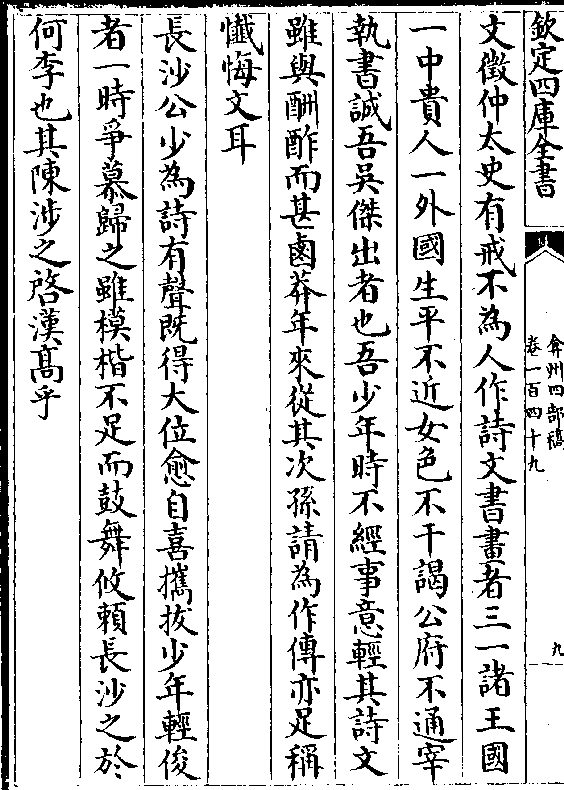 欽定四庫全書
弇州四部稿
卷一百四十九
九
文徵仲太史有戒不為人作詩文書畫者三一諸王國
一中貴人一外國生平不近女色不干謁公府不通宰
執書誠吾吳傑出者也吾少年時不經事意輕其詩文
雖與酬酢而甚鹵莽年來從其次孫請為作傳亦足稱
懺悔文耳
長沙公少為詩有聲既得大位愈自喜攜拔少年輕俊
者一時爭慕歸之雖模楷不足而鼓舞攸頼長沙之於
何李也其陳涉之啓漢髙乎